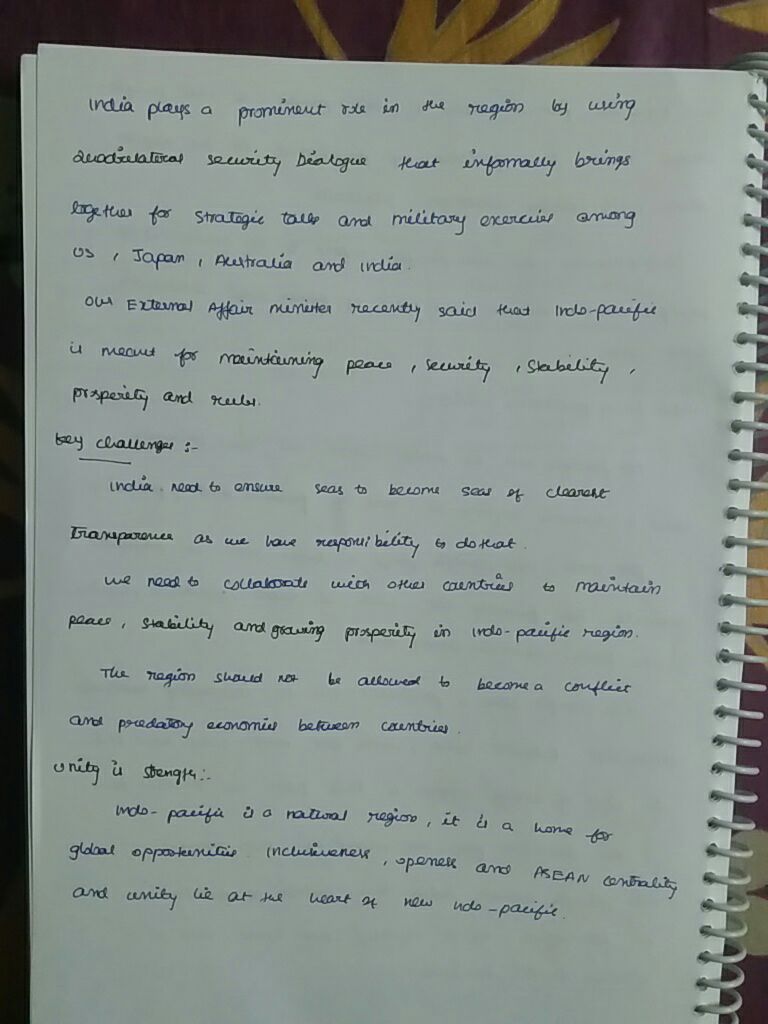 India plays a prominent role in the region by using
Quadrilateral security Dialogue that informally brings
together for strategic talks and military exercises among
US, Japan, Australia and India.
Our External Affair minister recently said that Indo-pacific
is meant for maintaining peace, security, stability,
prosperity and rules.
Key challenges :-
India need to ensure seas to become seas of clearest
Transparence as we have responsibility to do that.
We need to collaborate with other countries to maintain
peace, stability and growing prosperity in Indo-pacific region.
The region should not be allowed to become a conflict
and predatory economies between countries.
Unity is strength:-
Indo-pacific is a natural region, it is a home for
global opportunities. Inclusiveness, openess and ASEAN centrality
and unity lie at the heart of new Indo-pacific.